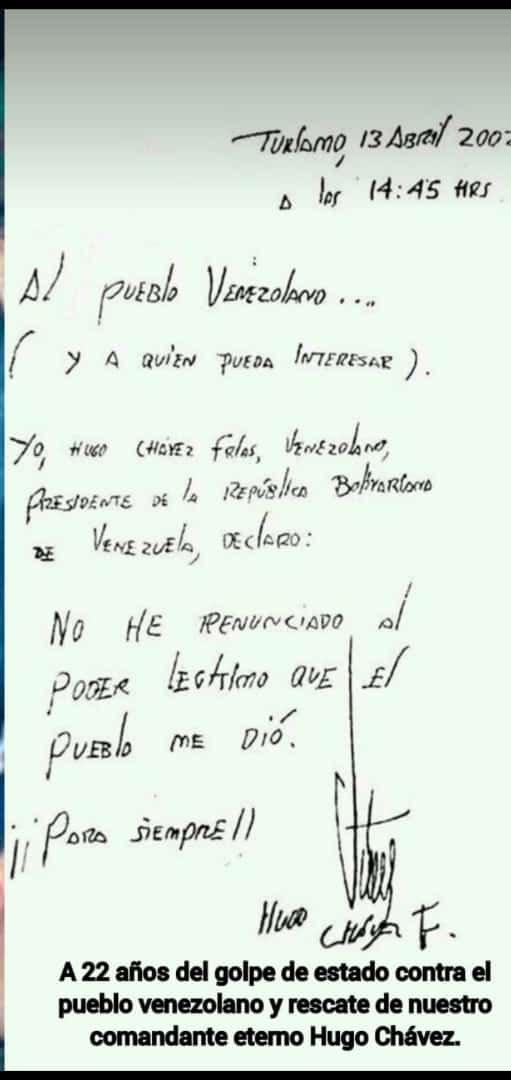 Turiamo, 13 Abril 2002
A las 14:45 HRS.
Al pueblo Venezolano....
( y a quien pueda Interesar ).
Yo, Hugo Chávez Frías, Venezolano,
Presidente de la República Bolivariana
de Venezuela, declaro:
No he renunciado al
poder legítimo que el
pueblo me dió.
¡¡Para siempre!!
Hugo Chávez F.
A 22 años del golpe de estado contra el
pueblo venezolano y rescate de nuestro
comandante eterno Hugo Chávez.